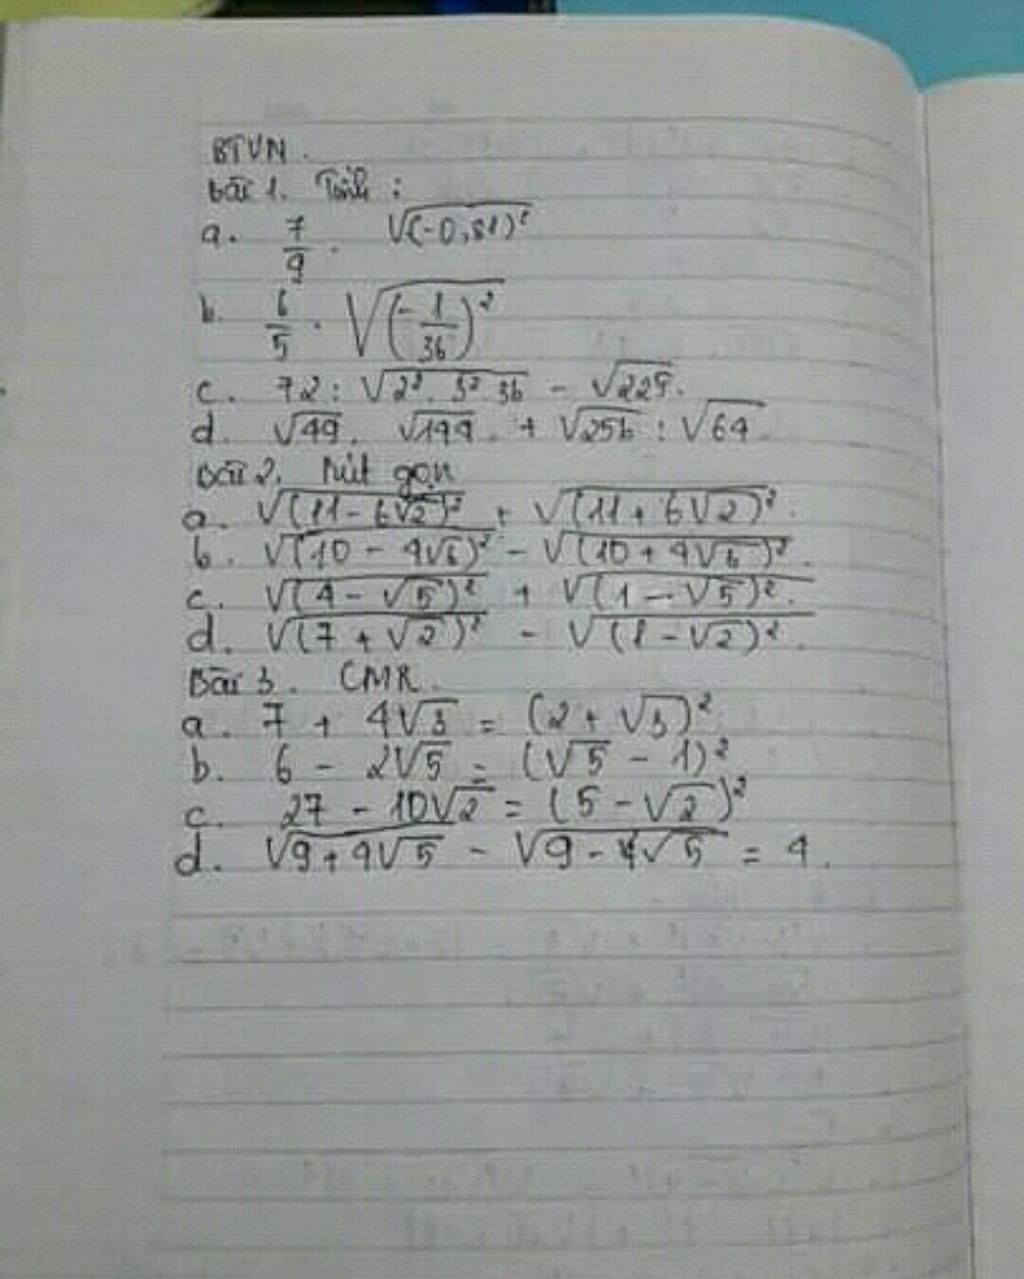 BTVN.
Bài 1. Tính :
a. 7/9 . √(-0,81)²
b. 6/5 . √(-1/36)²
c. 72 : √2². 3². 36 - √225.
d. √49. √144. + √256 : √64.
Bài 2. Rút gọn
a. √(11 - 6√2)² + √(11 + 6√2)².
b. √(10 - 4√6)² - √(10 + 4√6)².
c. √(4 - √5)² + √(1 - √5)².
d. √(7 + √2)² - √(1 - √2)².
Bài 3. CMR.
a. 7 + 4√3 = (2 + √3)²
b. 6 - 2√5 = (√5 - 1)²
c. 27 - 10√2 = (5 - √2)²
d. √9 + 4√5 - √9 - 4√5 = 4.